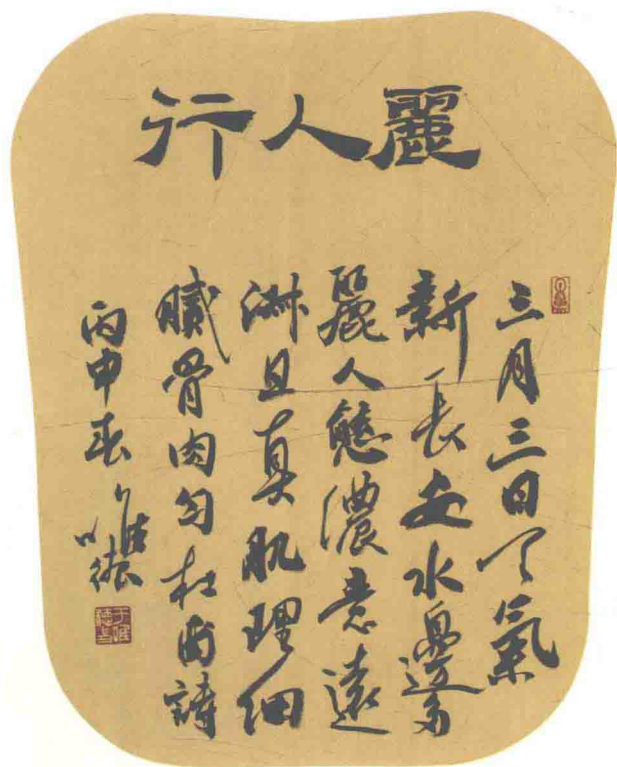 麗人行
三月三日天氣
新長安水邊多
麗人態濃意遠
淑且真肌理細
膩骨肉勻杜甫詩
丙申春